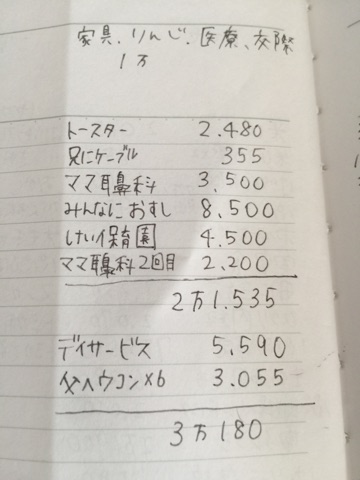 家具、りんじ、医療、交際
1万
トースター 2,480
兄にケーブル 355
ママ耳鼻科 3,500
みんなにおすし 8,500
けい保育園 4,500
ママ耳鼻科2回目 2,200
2万1.535
デイサービス 5,590
父へウコン×6 3.055
3万180